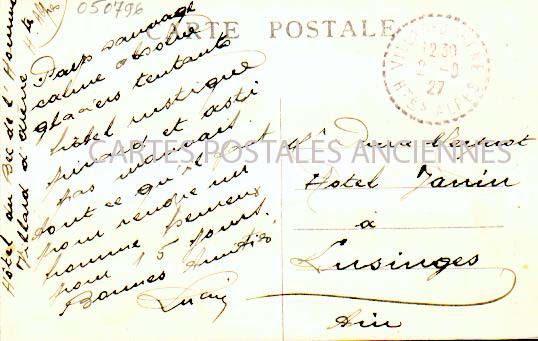 050796
CARTE POSTALE
Hôtel du Bec de l'Homme
Villard d'Arène Htes Alpes
Pays sauvage
calme absolu
glaciers tentants
hôtel rustique
pinard et asti
pas mauvais.
tout ce qu'il faut
pour rendre un
homme heureux
pour 15 jours.
Bonnes Amitiés
12 30
27
HTES ALPES
CARTES POSTALES ANCIENNES
Hotel Janin
à
Lusinges
Ain